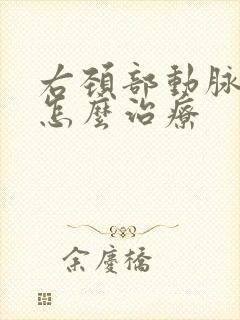 右頚部動脉
怎麼治療
余慶橋